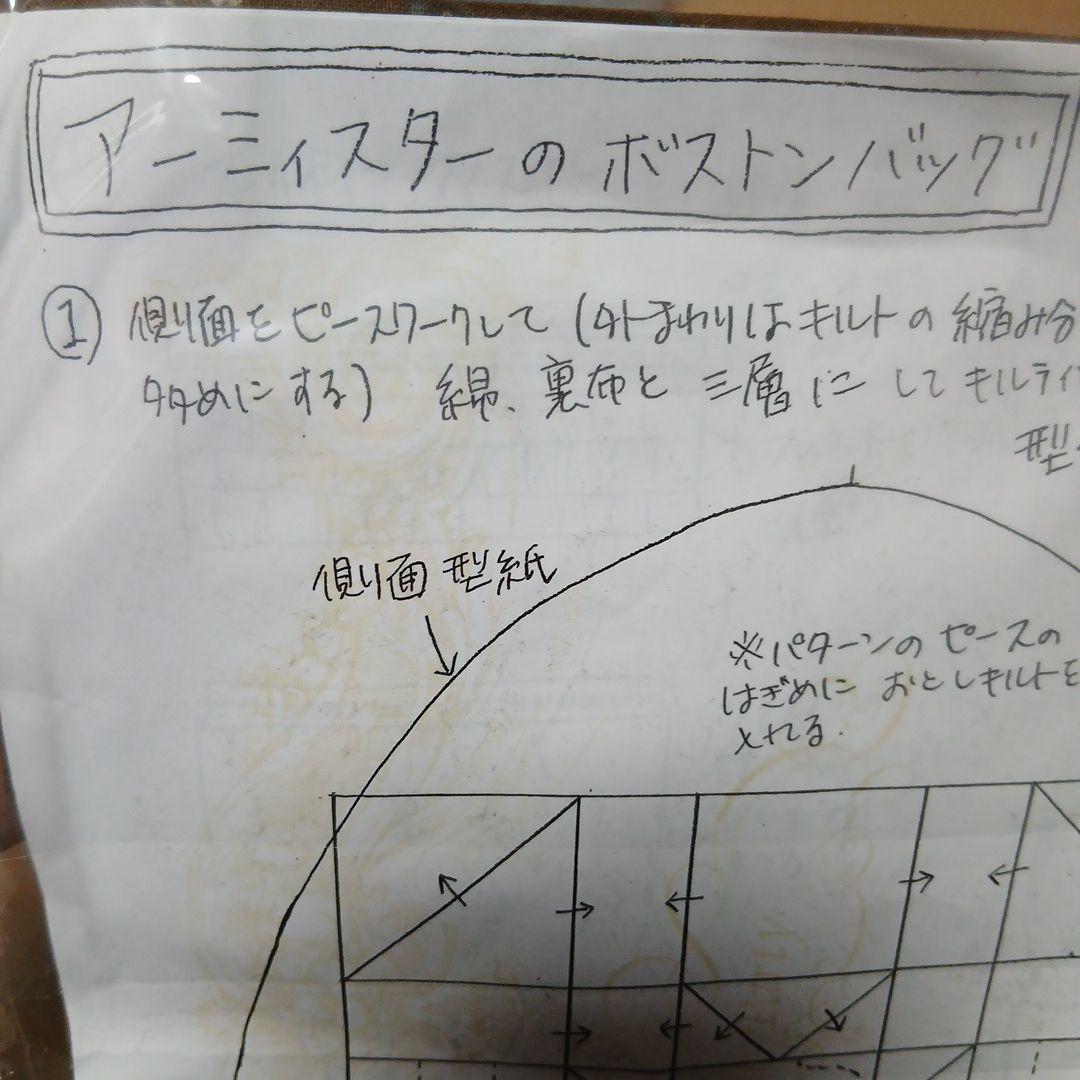 アーミィスターのボストンバッグ
① 側面をピースワークして(外まわりはキルトの縮み分
多めにする) 綿、裏布と三層にしてキルティ
型
側面型紙
※パターンのピースの
はぎめにおとしキルトを
入れる.